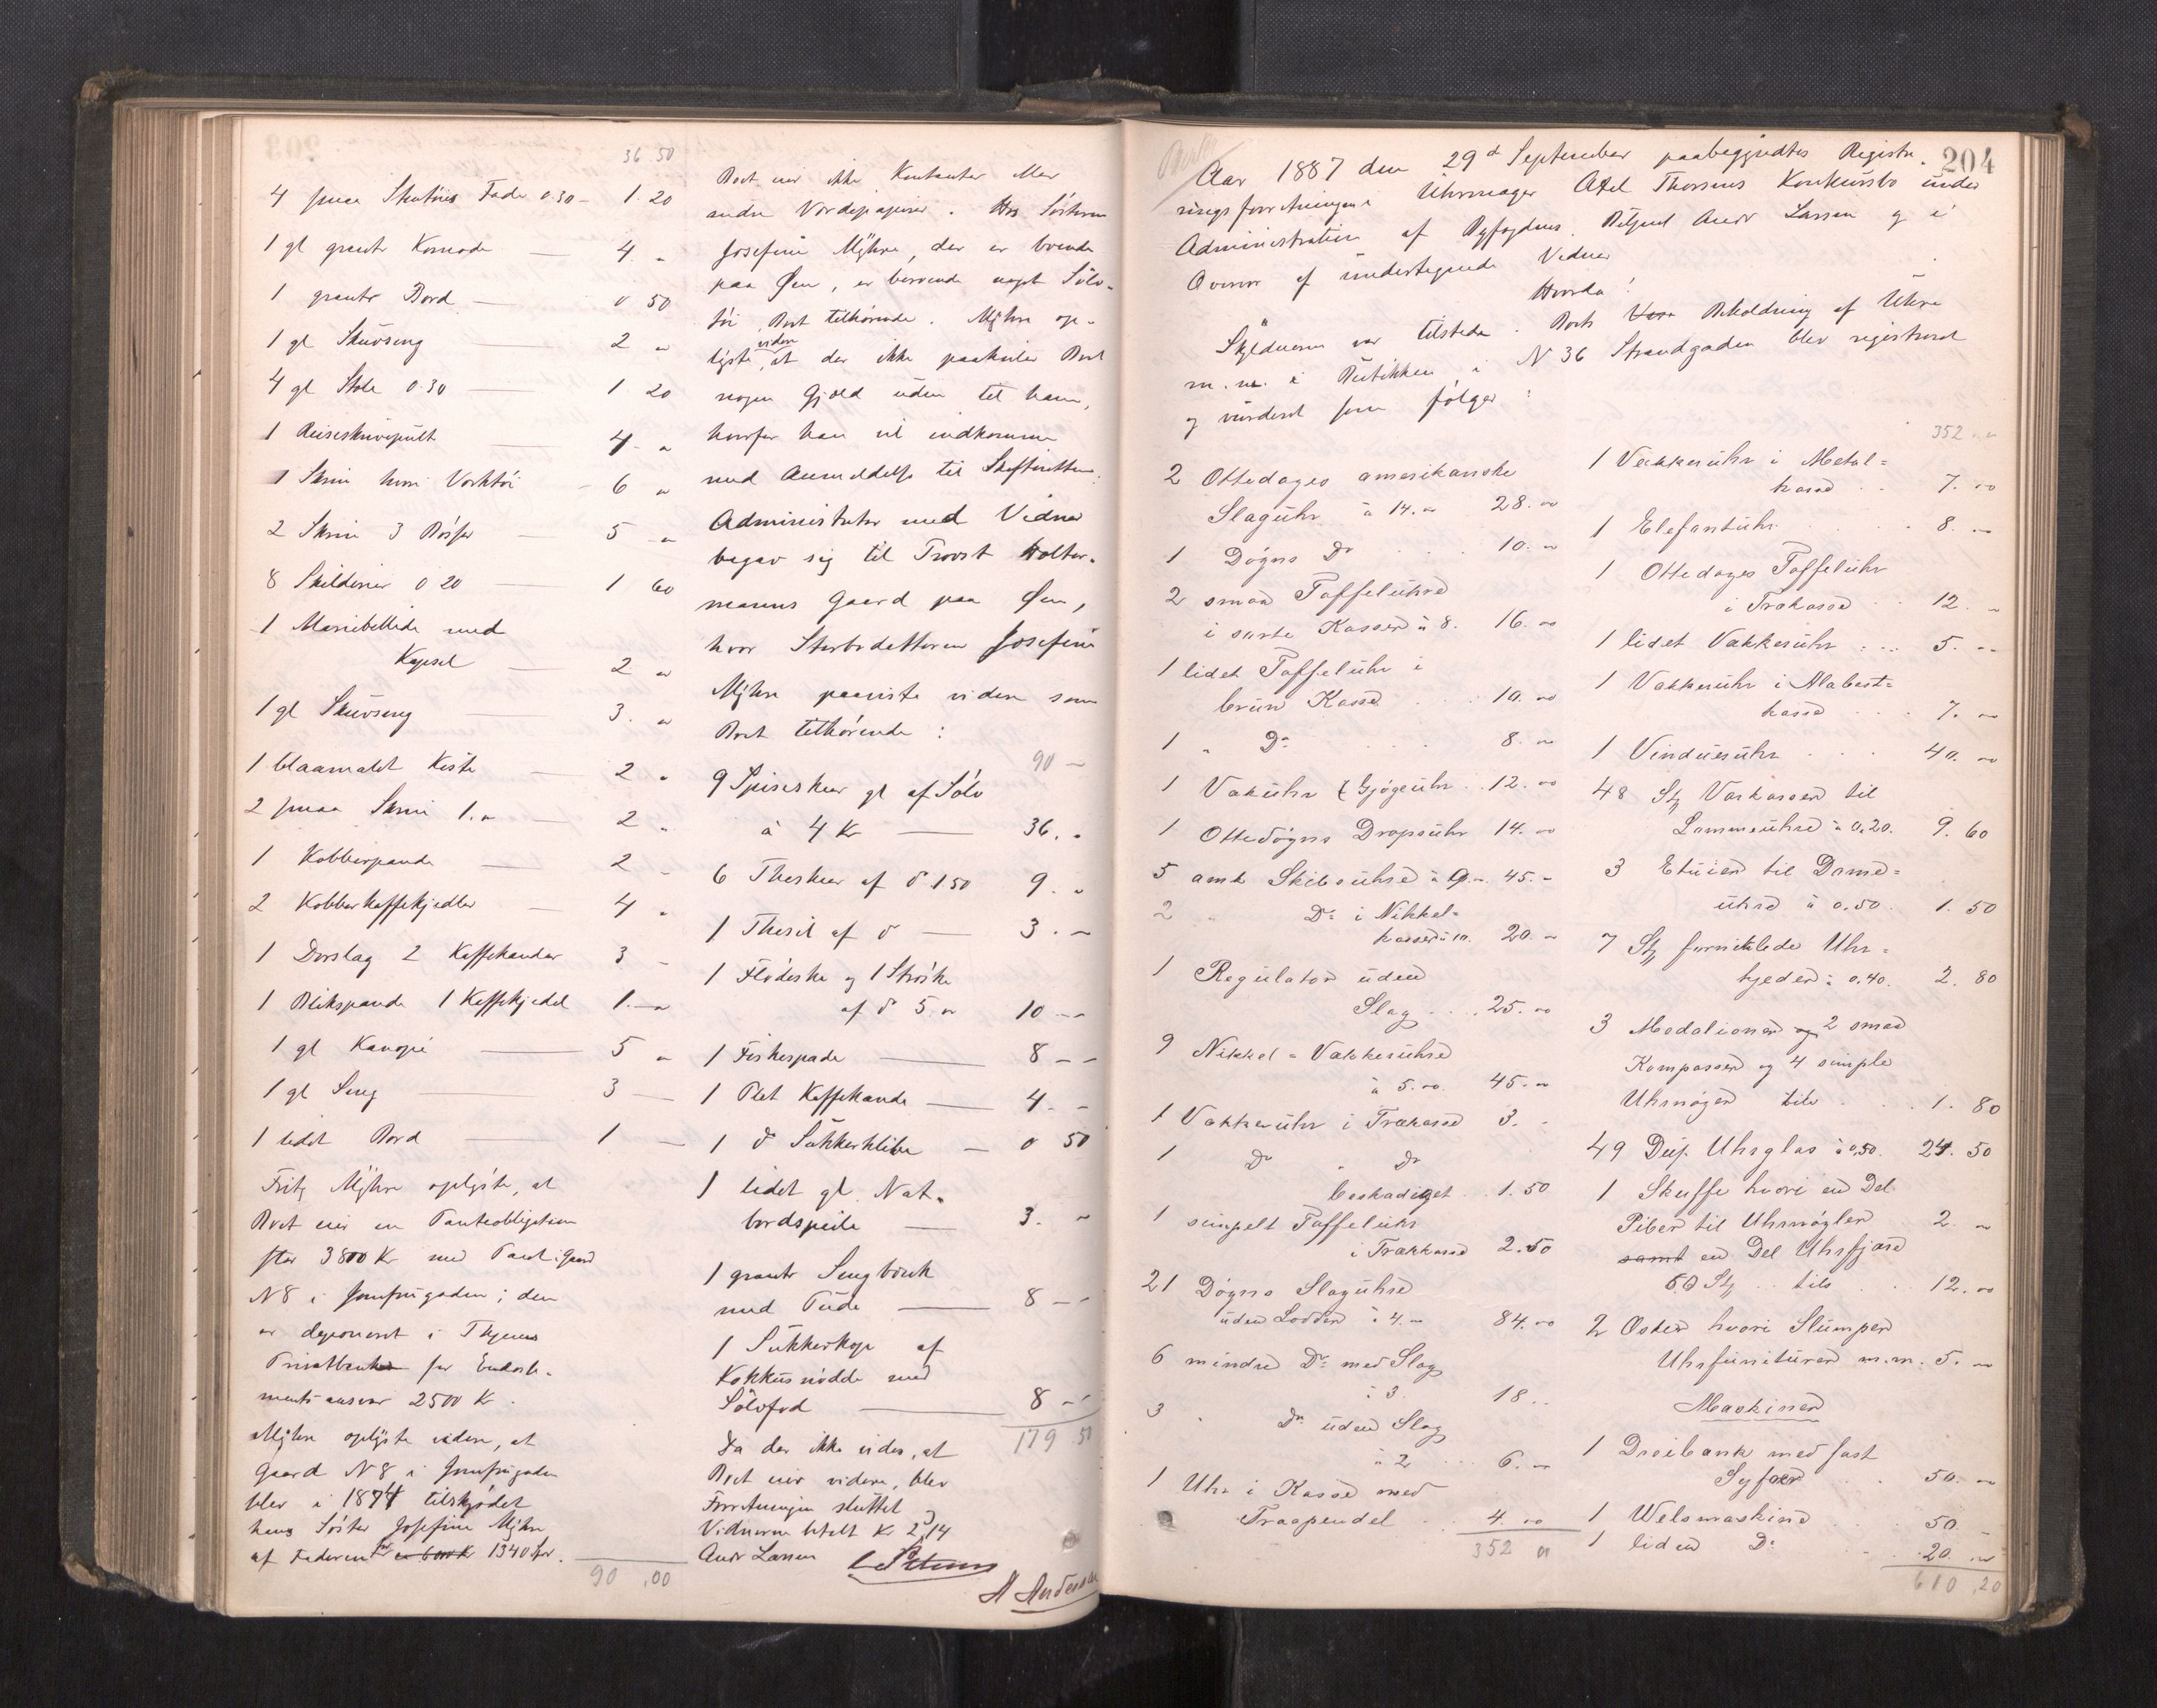 36 50
4 smaa Stentöies Fade 0.30 - 1.20
1 gl graat Komode — 4. "
1 graat Bord — 0 50
1 gl Skuvseng — 2 "
4 gl Stole 0.30 — 1 20
1 Reiseskrivepult — 4. "
1 Skrin hvori Verktöi - 6 "
2 Skrin 3 Bösser — 5 "
8 Skilderier 0 20 — 1 60
1 Mariebillede med
Kapsel — 2 "
1 gl Skuvseng — 3. "
1 blaamalet Kiste — 2 "
2 smaa Skrin 1. " — 2 "
1 Kobberpande — 2 "
2 Kobberkaffekjedler — 4 "
1 Dorslag 2 Kaffekander 3 -
1 Blikspande 1 Kaffekjedel 1. "
1 gl Kanape — 5 "
1 gl Seng — 3 —
1 lidet Bord — 1 —
Fritz Myhre oplyste, at
Boet eier en Panteobligation
stor 3800 Kr med Pant i Gaard
N 8 i Jomfrugaden; den
er deponeret i
Privatbank for Endosse-
ments ansvar 2500 K.
Myhre oplyste videre, at
Gaard N 8 i Jomfrugaden
blev i 1874 tilskjödet
hans Söster Josefine Myhre
af Faderen for 1340 Spd.
90 .00
Boet eier ikke Kontanter eller
andre Værdipapirer. Hos Sösteren
Josefine Myhre, der er boende
paa Øen, er beroende noget Sölv-
töi, Boet tilhörende. Myhre op-
lyste videre, at der ikke paahviler Boet
nogen Gjæld uden til ham,
hvorfor han vil indkomme
med Anmeldelse til Skifteretten.
Administrator med Vidner
begav sig til Provst Holter-
manns Gaard paa Øen,
hvor Sterbodatteren Josefine
Myhre paaviste videre som
Boet tilhörende:
90 —
9 Spiseskeer gl af Sölv
à 4 Kr — 36. "
6 Theskeer af do 1 50 9. "
1 Thesil af do — 3. —
1 Flödeske og 1 Ströske
af do 5. " 10 —
1 Fiskespade — 8 —
1 Plet Kaffekande — 4. -
1 do Sukkerklibe — 0 50
1 lidet gl. Nat-
bordspeile — 3. "
1 graat Sengbænk
med Pude — 8 —
1 Sukkerkop af
Kokkusnödde med
Sölvfod — 8 —
179 50
Da der ikke vides, at
Boet eier videre, blev
Forretningen sluttet
Vidnerne betalt K 2,14
Andr Larsen C Petersen
A Andersen
204
Aar 1887 den 29d September paabegyndtes Registre-
ringsforretningen i Uhrmager Axel Thorsens Konkursbo under
Administration af Byfogdens Betjent Andr Larsen og i
Overvær af undertegnede Vidner
Hvorda!
Skyldneren var tilstede. Boets Beholdning af Uhre
m.m. i Butikken i N 36 Strandgaden blev registreret
og vurderet som fölger:
2 Ottedages amerikanske
Slaguhr à 14. " 28. "
1 Dögns Do . . . 10. "
2 smaa Taffeluhre
i sorte Kasser à 8. 16. "
1 lidet Taffeluhr i
brun Kasse . . 10. "
1 " Do . . . 8. "
1 Vækuhr (Gjögeuhr . 12. "
1 Ottedögns Dropsuhr 14. "
5 amk Skibsuhre à 9. " 45. "
2 " Do i Nikkel-
kasser à 10. 20. "
1 Regulator uden
Slag . . . 25. "
9 Nikkel-Vækkeruhre
à 5. " 45. "
1 Vækkeruhr i Trækasse 3. "
1 Do " Do
beskadiget . 1. 50
1 simpelt Taffeluhr
i Trækkasse 2. 50
21 Dögns Slaguhre
uden Lodder à 4. " 84. "
6 mindre Do med Slag
à 3. 18 . .
3 " Do uden Slag
à 2 . . . 6. "
1 Uhr i Kasse med
Træpendel . . 4. "
352 "
352 "
1 Vækkeruhr i Metal-
kasse . . 7. "
1 Elefantuhr . . . . 8. "
1 Ottedages Taffeluhr
i Trækasse . . 12. "
1 lidet Vækkeruhr . . . 5. "
1 Vækkeruhr i Alabast-
kasse . . . 7. "
1 Vinduesuhr . . . 40. "
48 Stk Vækasser til
Lommeuhre à 0.20. 9. 60
3 Etuier til Dame-
uhre à 0.50. 1. 50
7 Stk forniklede Uhr-
kjeder à 0.40. 2. 80
3 Medalioner og 2 smaa
Kompasser og 4 simple
Uhrnögler tils . . . 1. 80
49 Dus. Uhrglas à 0,50. 24. 50
1 Skuffe hvori en Del
Piber til Uhrnögler 2. "
samt en Del Uhrfjære
60 Stk . . tils . . 12. "
2 Æsker hvori Slumper
Uhrfuniturer m.m. 5. "
Maskiner
1 Dreibænk med fast
. . 50. "
1 Welsmaskine . . . 50. "
1 liden Do . . 20. "
610 .20